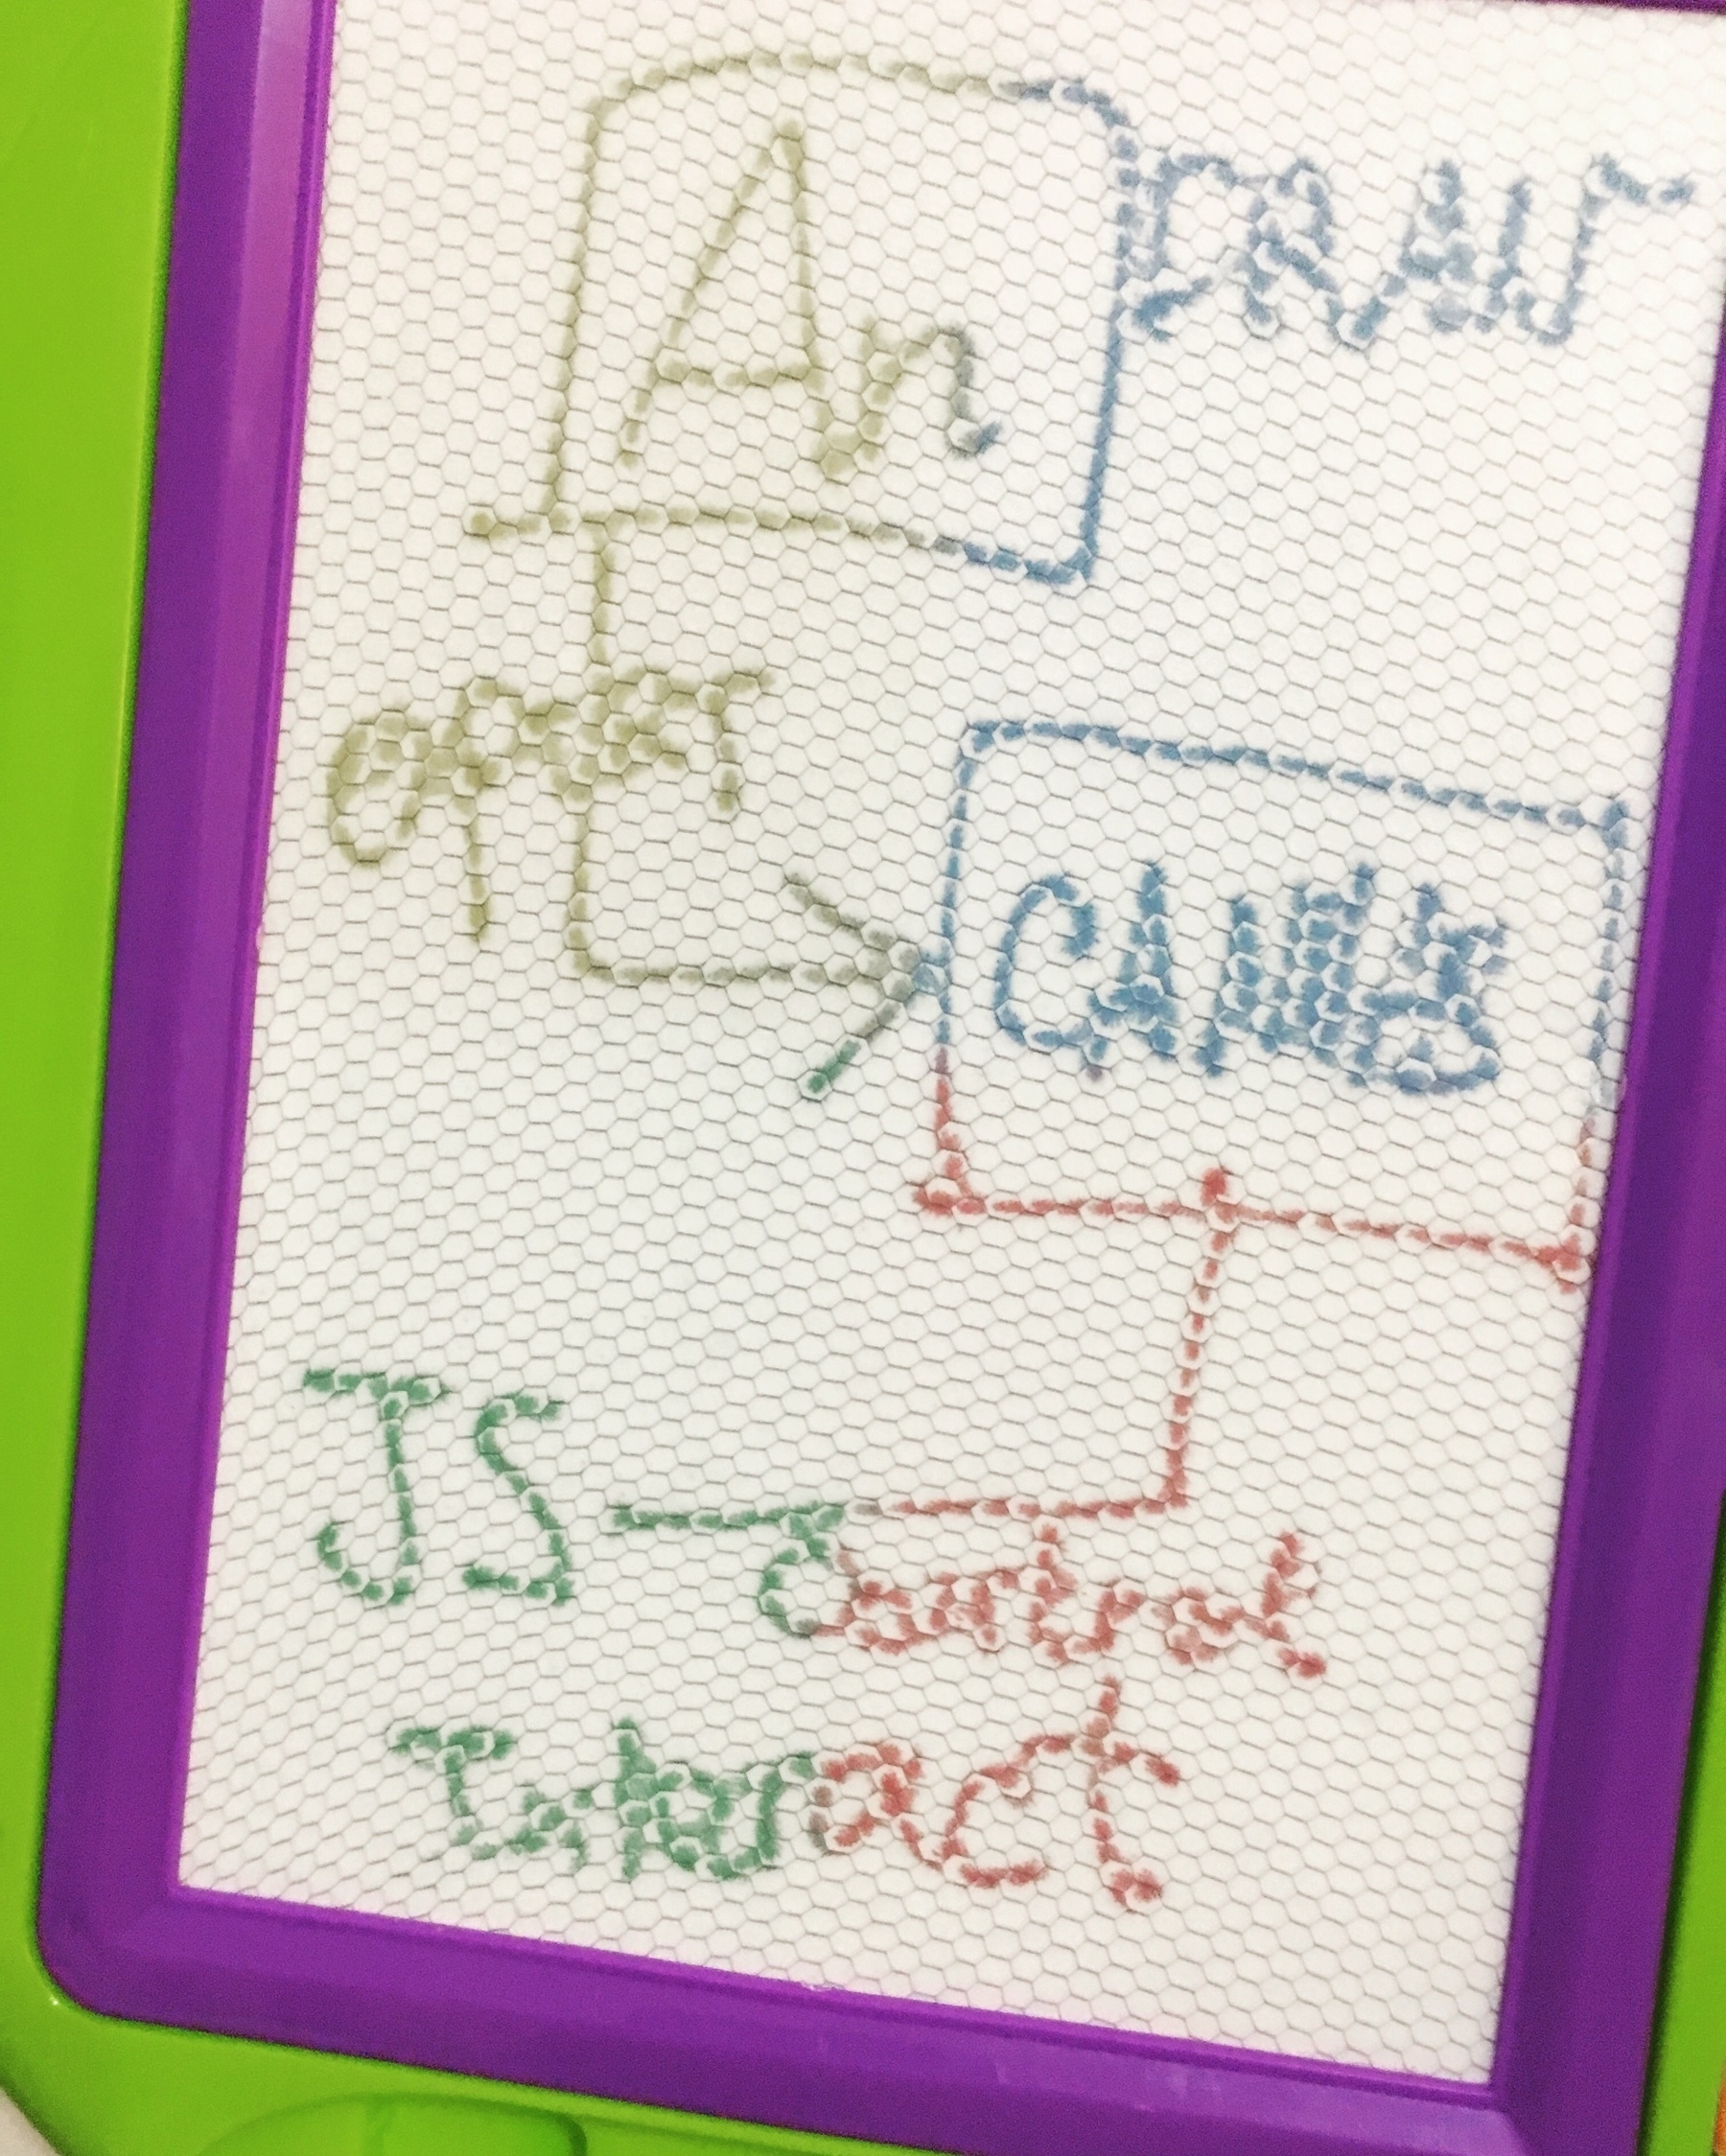 An
DRAW
export
CANVAS
JS
Control
Interact